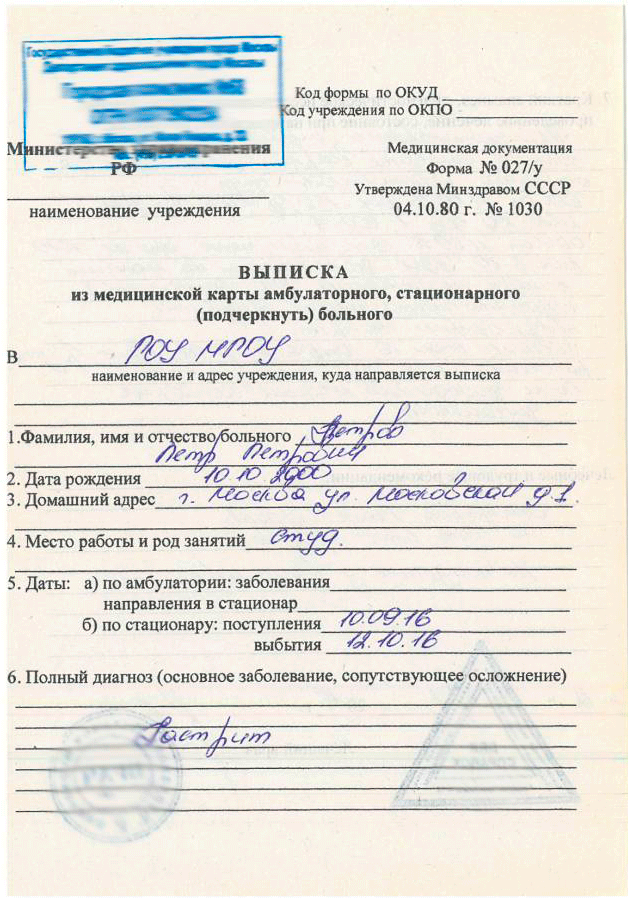 Код формы по ОКУД
Код учреждения по ОКПО
Министерство здравоохранения
РФ
наименование учреждения
Медицинская документация
Форма № 027/у
Утверждена Минздравом СССР
04.10.80 г. № 1030
ВЫПИСКА
из медицинской карты амбулаторного, стационарного
(подчеркнуть) больного
В РОУ МРОУ
наименование и адрес учреждения, куда направляется выписка
1.Фамилия, имя и отчество больного Петров
Петр Петрович
2. Дата рождения 10 10. 2000
3. Домашний адрес г. Москва ул. Московская д 1.
4. Место работы и род занятий студ.
5. Даты: а) по амбулатории: заболевания
направления в стационар
б) по стационару: поступления 10.09.16
выбытия 12.10.16
6. Полный диагноз (основное заболевание, сопутствующее осложнение)
Гастрит